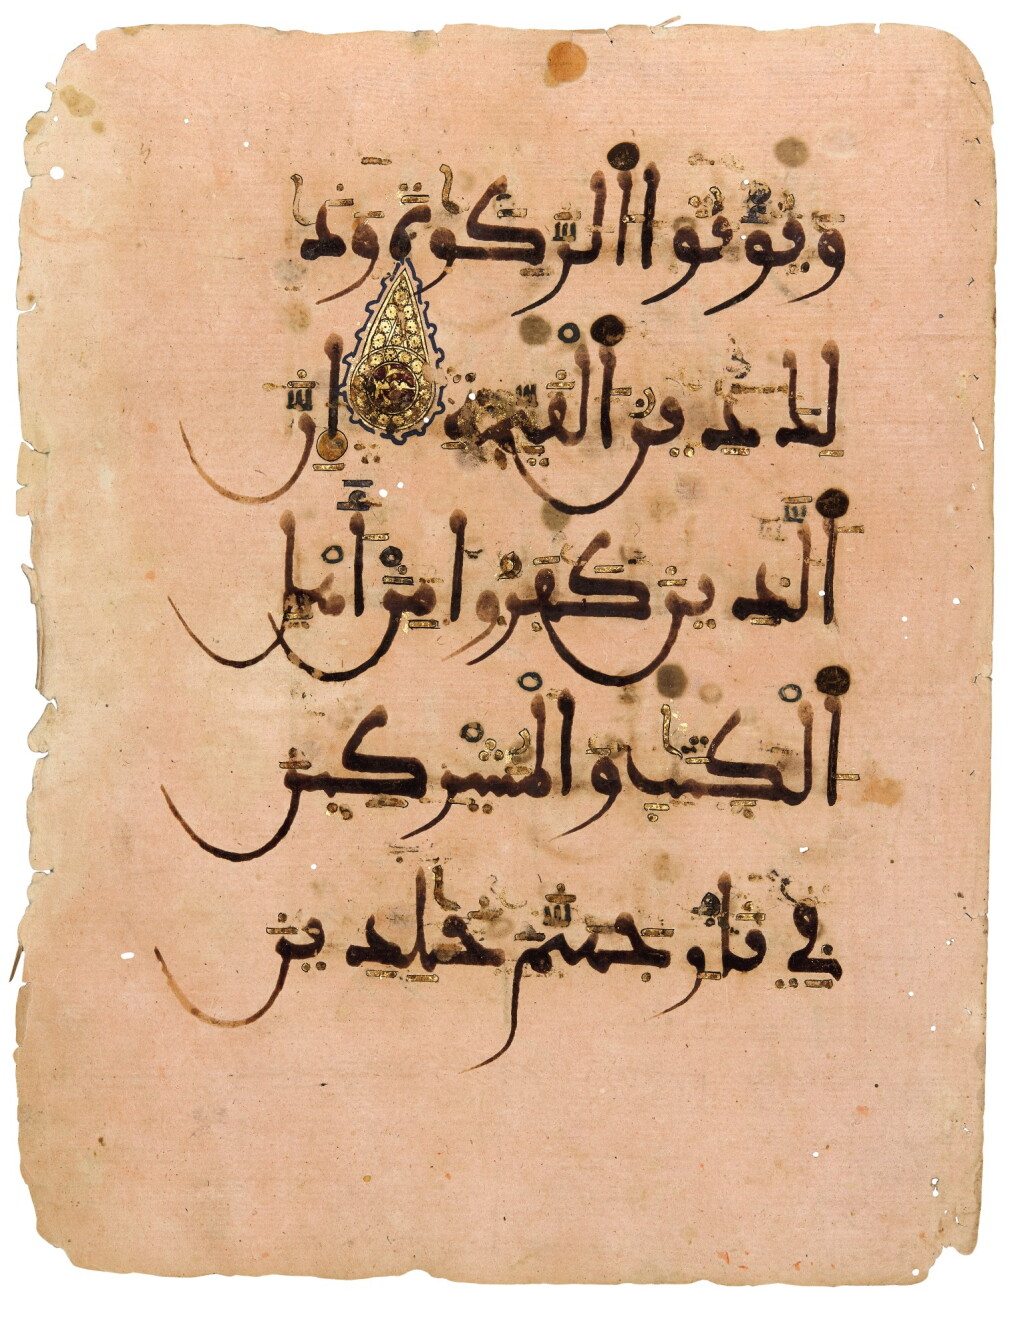 وَيُوتُوا اُ۬لزَّكَوٰةَ وَذَٰ
لِكَ دِينُ اُ۬لْقَيِّمَةِ إِنَّ
اَ۬لذِينَ كَفَرُوا مِنَ اَهْلِ
اِ۬لْكِتَٰبِ وَالْمُشْرِكِينَ
فِي نَارِ جَهَنَّمَ خَٰلِدِينَ